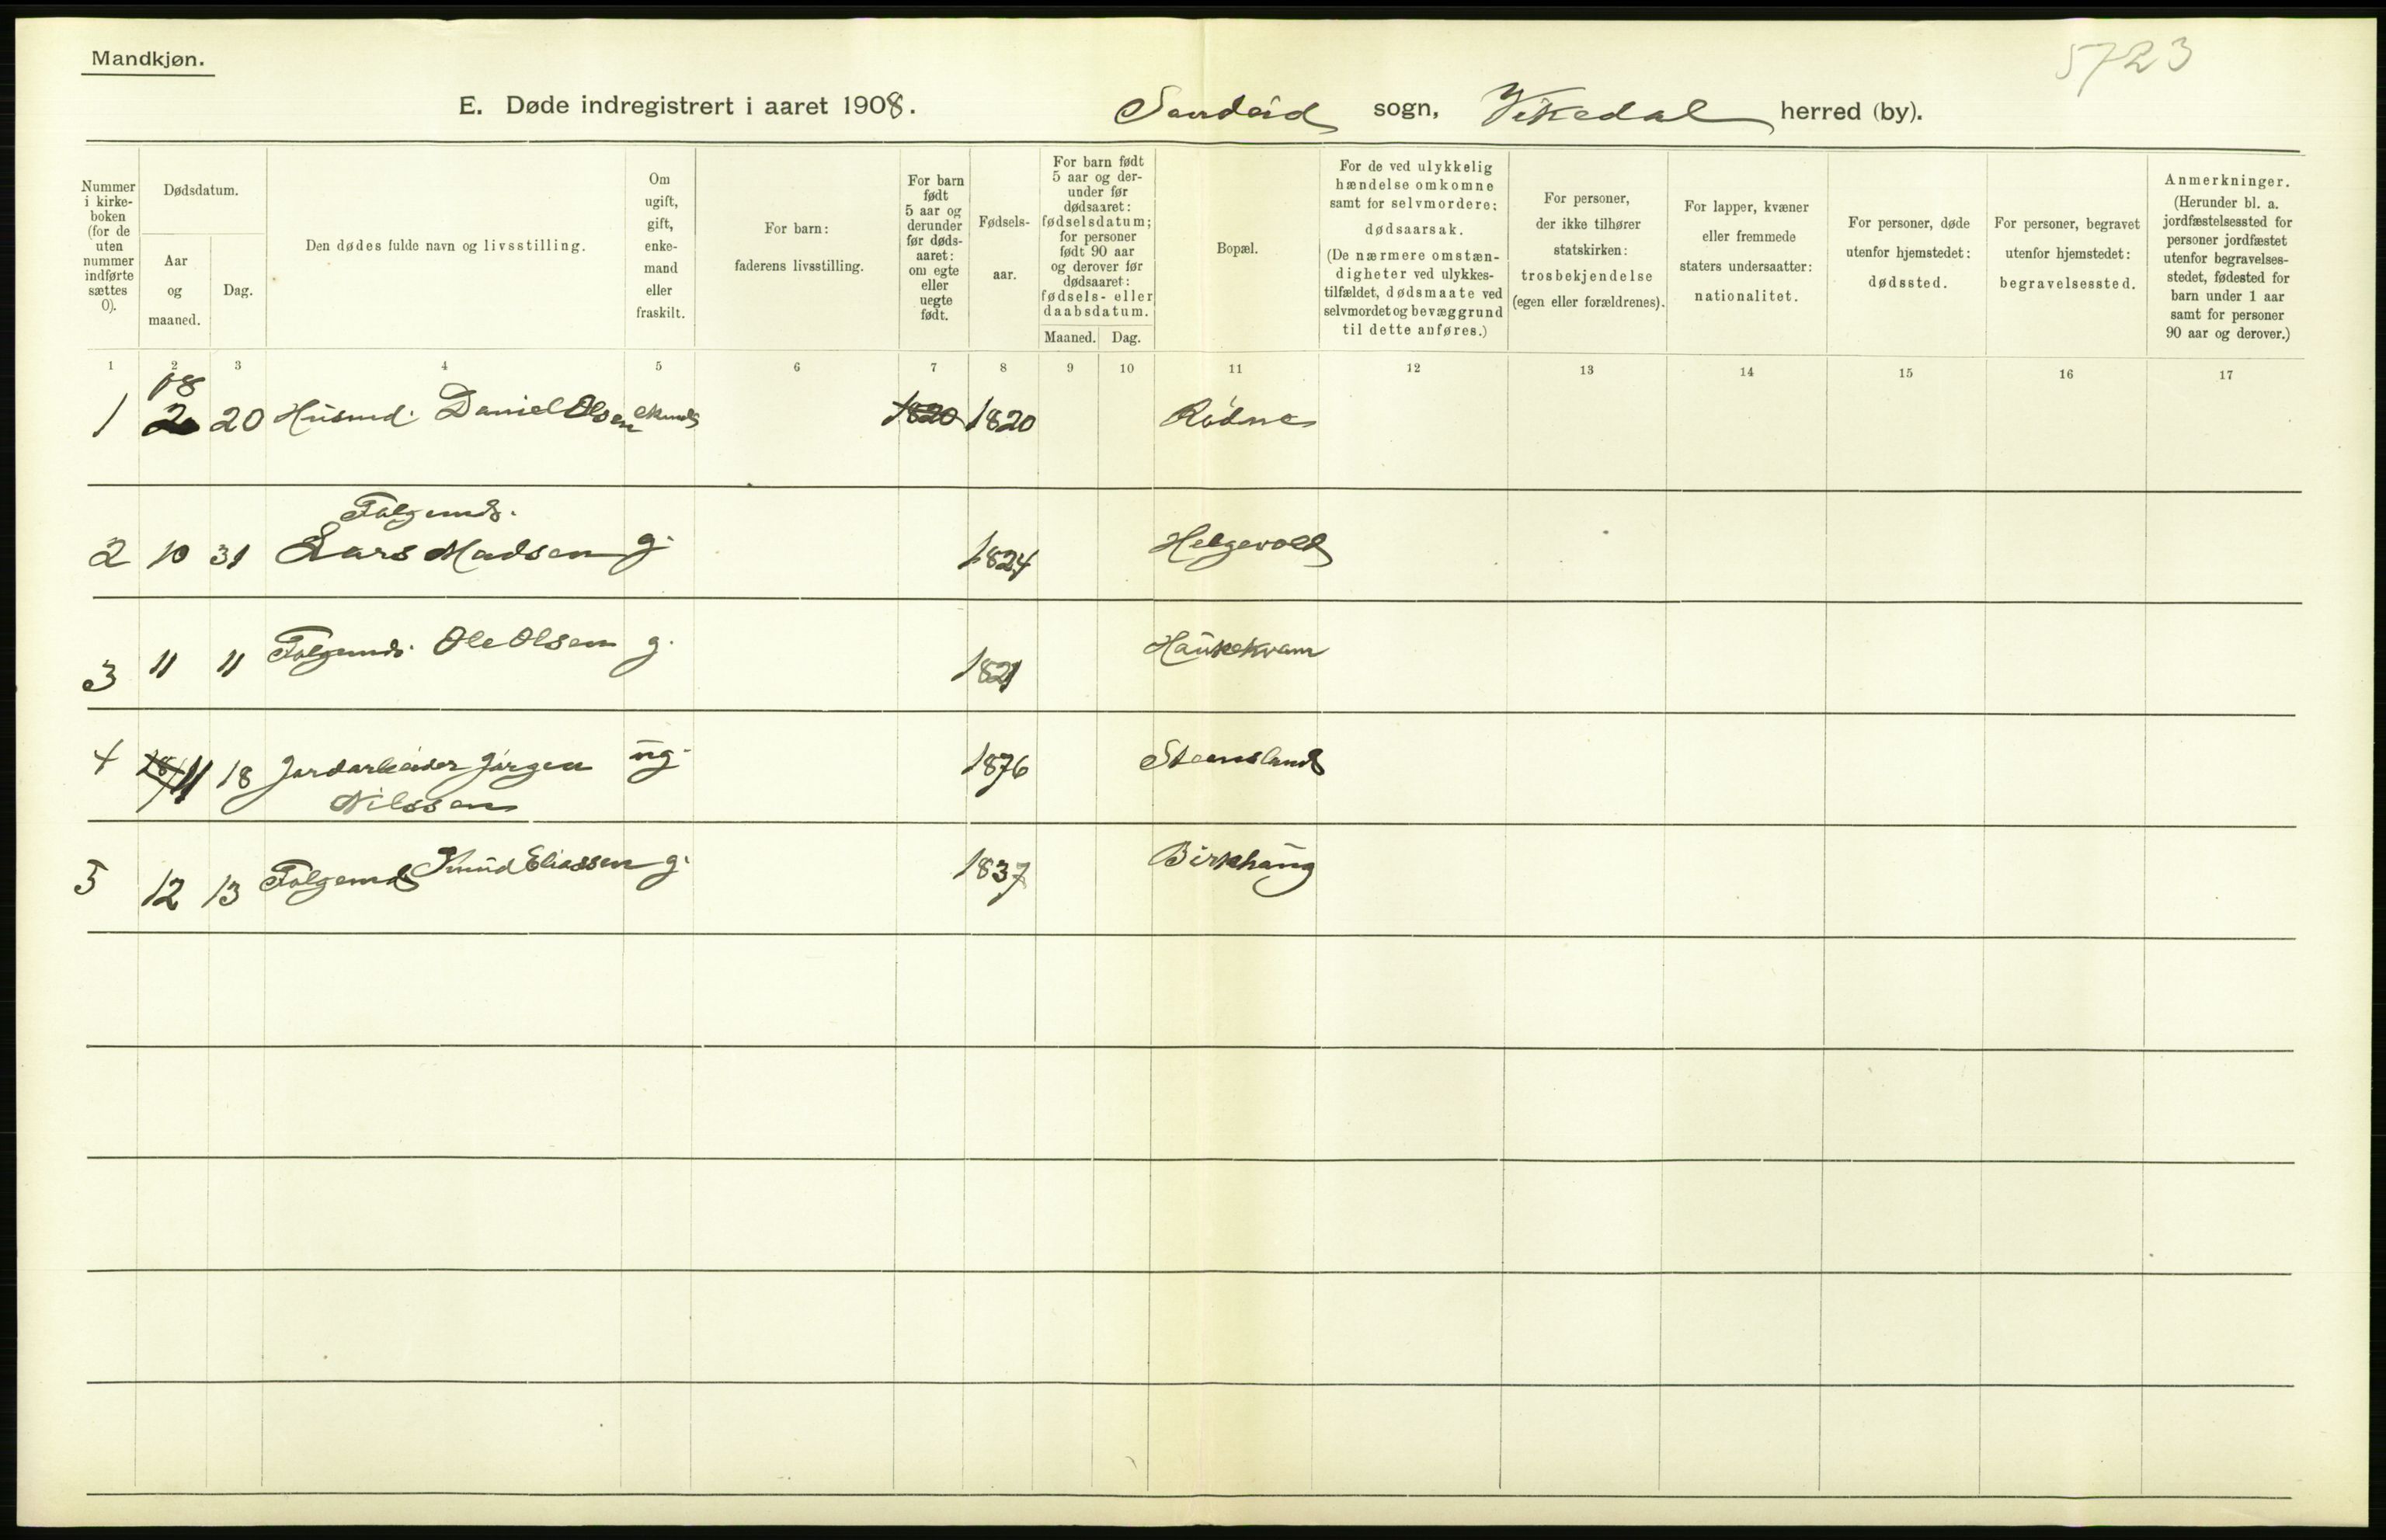 Mandkjøn.
5723
E. Døde indregistrert i aaret 1908. Sandeid sogn, Vikedal herred (by).
Nummer i kirke- boken (for de uten nummer indførte sættes 0).
Dødsdatum.
Aar og maaned.
Dag.
Den dødes fulde navn og livsstilling.
Om ugift, gift, enke- mand eller fraskilt.
For barn: faderens livsstilling.
For barn født 5 aar og derunder før døds- aaret: om egte eller uegte født.
Fødsels- aar.
For barn født 5 aar og der- under før dødsaaret: fødselsdatum; for personer født 90 aar og derover før dødsaaret: fødsels- eller daabsdatum.
Maaned. Dag.
Bopæl.
For de ved ulykkelig hændelse omkomne samt for selvmordere: dødsaarsak. (De nærmere omstæn- digheter ved ulykkes- tilfældet, dødsmaate ved selvmordet og bevæggrund til dette anføres.)
For personer, der ikke tilhører statskirken: trosbekjendelse (egen eller forældrenes).
For lapper, kvæner eller fremmede staters undersaatter: nationalitet.
For personer, døde utenfor hjemstedet: dødssted.
For personer, begravet utenfor hjemstedet: begravelsessted.
Anmerkninger. (Herunder bl. a. jordfæstelsessted for personer jordfæstet utenfor begravelses- stedet, fødested for barn under 1 aar samt for personer 90 aar og derover.)
1 2 3 4 5 6 7 8 9 10 11 12 13 14 15 16 17
08
1 2 20 Husmd. Daniel Olsen ekmd 1820 1820 Rødne
Folgemd.
2 10 31 Lars Madsen g. 1824 Helgevold
3 11 11 Folgemd. Ole Olsen g. 1821 Haukekvam
4 18/11 18 Jordarbeider Jørgen ug. 1876 Stensland
Nilssen
5 12 13 Følgemd Knud Eliassen g. 1837 Birkhaug